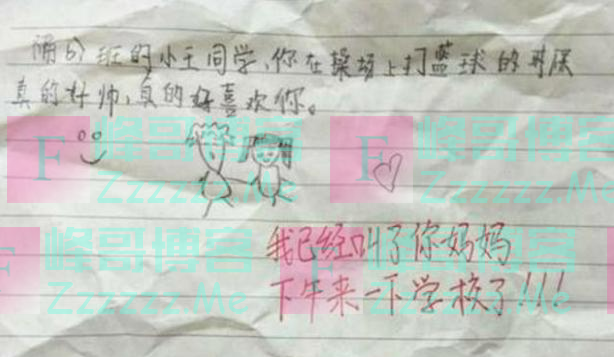 隔b)班的小王同学,你在操场上打蓝球的时候
真的好帅,真的好喜欢你。
我已经叫了你妈妈
下午来一下学校了!!!
F 峰哥博客
Zzzzzz.Me
F 峰哥博客
Zzzzzz.Me
峰哥博客
Zzzzzz.Me
峰哥博客
Zzzzzz.Me